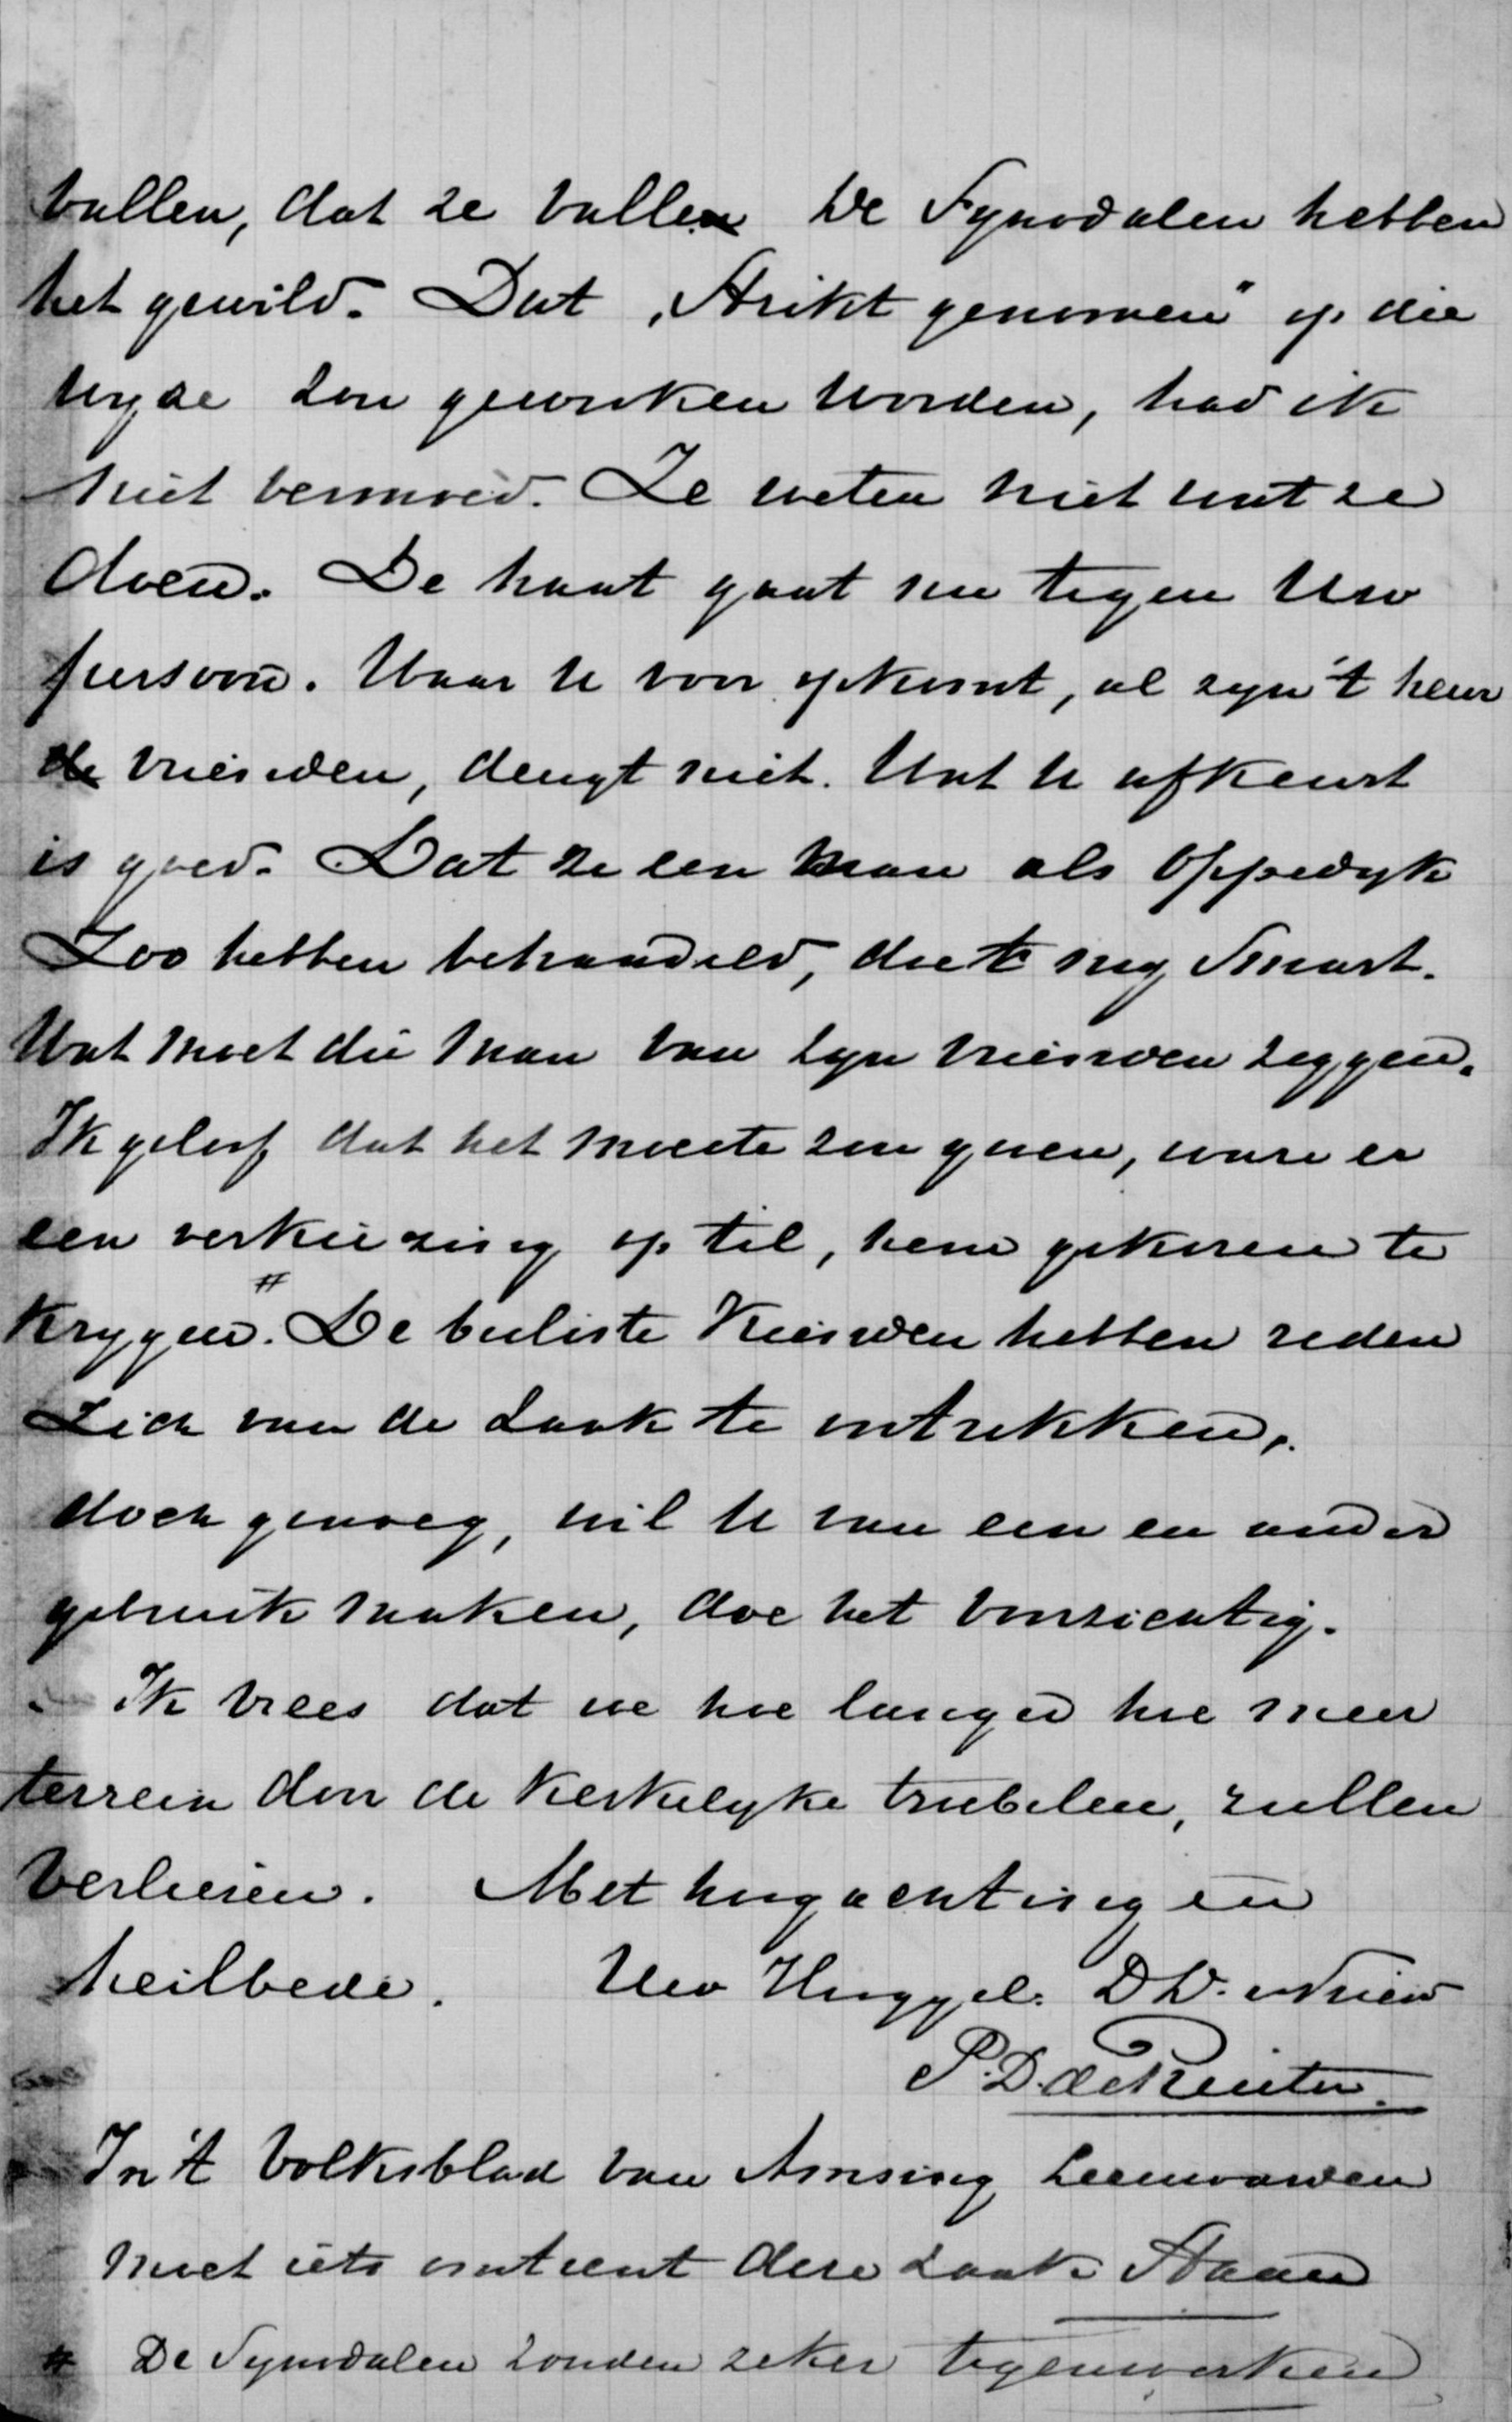 vallen, dat ze vallen De Synodalen hebben
het gewild. Dat „Strikt genomen" op die
wyze zou gewroken worden, had ik
niet vermoed. Ze weten niet wat ze
doen. De haat gaat nu tegen Uw
persoon. Waar U voor opkomt, al zyn 't hun
de vrienden, deugt niet. Wat U afkeurt
is goed. Dat ze een man als Oppedyk
Zoo hebben behandeld, doet my Smart.
Wat moet die man van zyn vrienden zeggen.
Ik geloof dat het moeite zou geven, ware er
een verkiezing op til, hem gekozen te
krygen.# De beste vrienden hebben reden
Zich van de zaak te onttrekken,
doch genoeg, wil U van een en ander
gebruik maken, doe het voorzichtig.
Ik vrees dat we hoe langer hoe meer
terrein door de kerkelyke troebelen, zullen
verliezen. Met hoogachting en
heilbede. Uw Hooggel. DW. Vriend
P.D. de Ruiter.
In 't Volksblad van Amsing Leeuwarden
moet iets omtrent deze zaak Staan
# De Synodalen zouden zeker tegenwerken